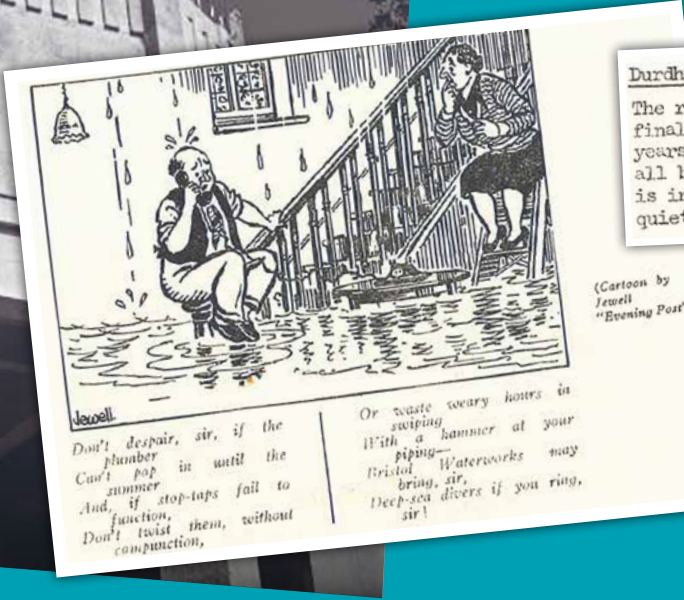 Jewell.
Don't despair, sir, if the
plumber
Can't pop in until the
summer
And, if stop-taps fail to
function,
Don't twist them, without
compunction,
Or waste weary hours in
swiping
With a hammer at your
piping—
Bristol Waterworks may
bring, sir,
Deep-sea divers if you ring,
sir!
(Cartoon by
Jewell
"Evening Post"
Durdh
The r
final
years
all b
is in
quiet